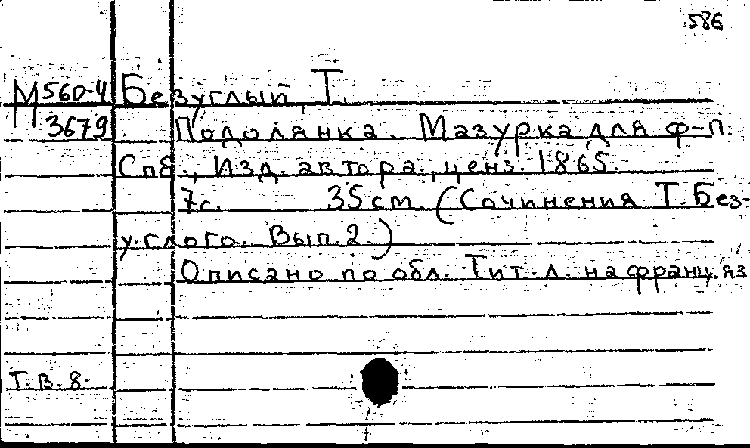 586
М 560-4 Безуглый, Т.
3679 Подолянка. Мазурка для ф-п.
Спб., Изд. автора, ценз. 1865.
7с. 35 см. (Сочинения Т. Без-
углого. Вып. 2.)
Описано по обл. Тит. л. на франц. яз
Т. В. 8.